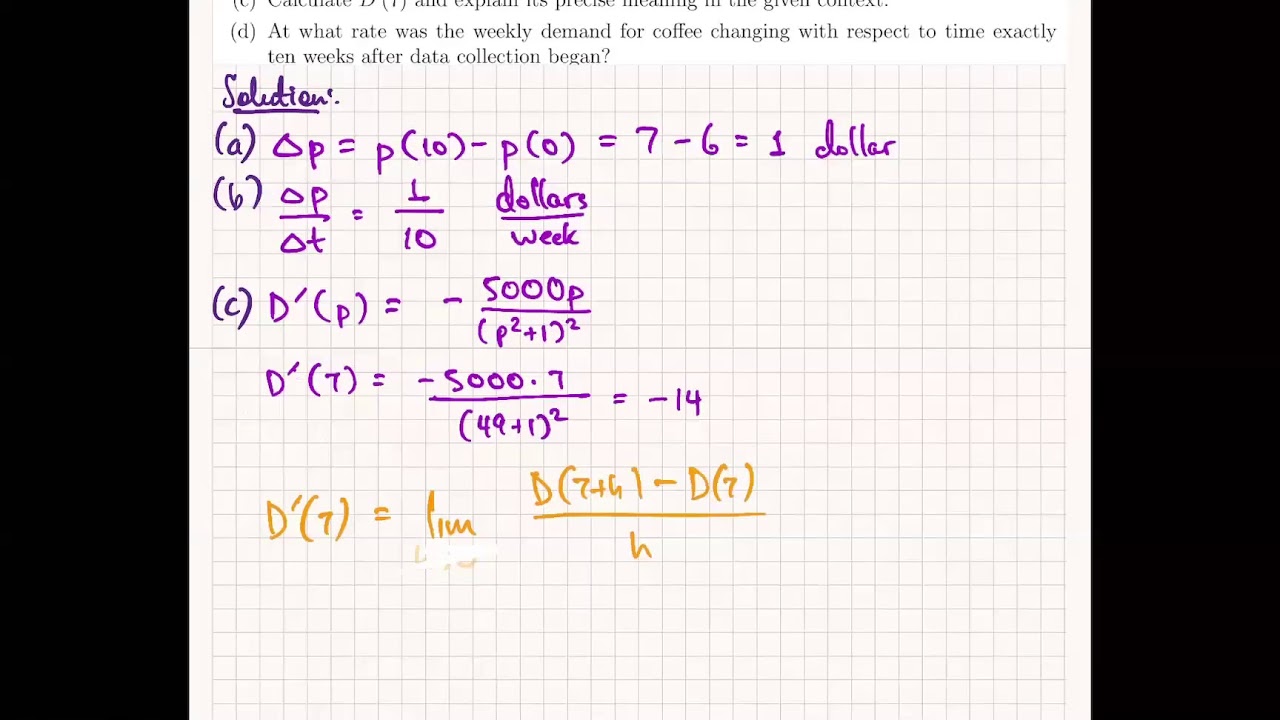 (c) Calculate D′(7) and explain its precise meaning in the given context.
(d) At what rate was the weekly demand for coffee changing with respect to time exactly
ten weeks after data collection began?
Solution:
(a) Δp = p(10) - p(0) = 7 - 6 = 1 dollar
(b) Δp/Δt = 1/10 dollars/week
(c) D′(p) = - 5000p/(p²+1)²
D′(7) = -5000·7/(49+1)² = -14
D′(7) = lim D(7+h) - D(7)/h